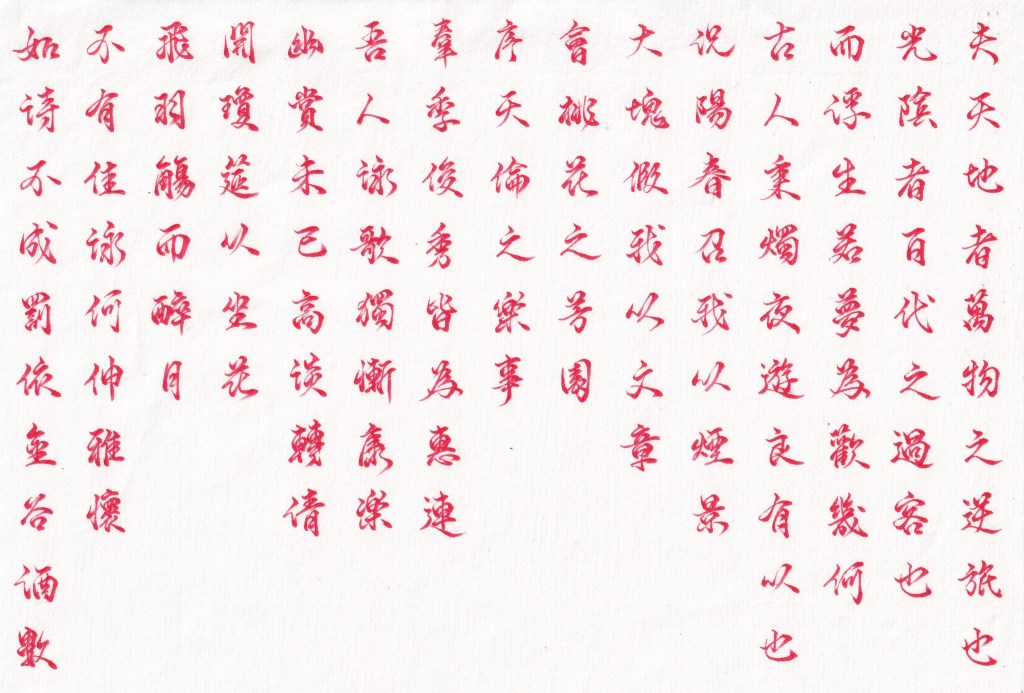 夫天地者萬物之逆旅也
光陰者百代之過客也
而浮生若夢為歡幾何
古人秉燭夜遊良有以也
況陽春召我以煙景
大塊假我以文章
會桃花之芳園
序天倫之樂事
羣季俊秀皆為惠連
吾人詠歌獨慚康樂
幽賞未已高談轉清
開瓊筵以坐花
飛羽觴而醉月
不有佳詠何伸雅懷
如詩不成罰依金谷酒數